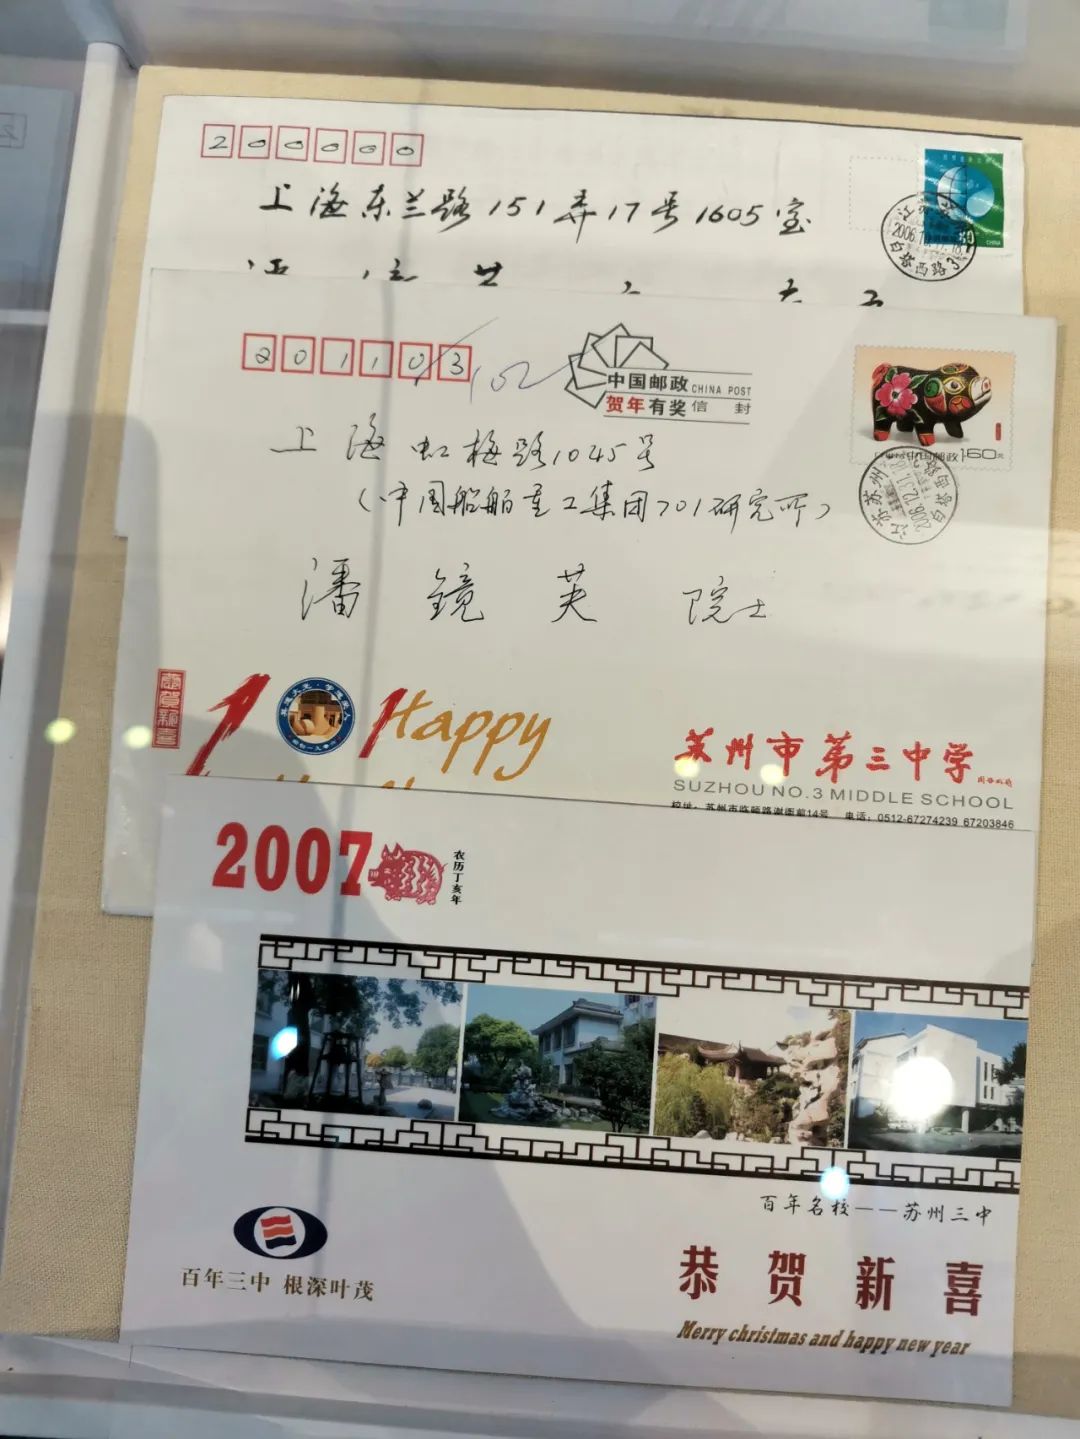 200000
上海东兰路151弄17号1605室
80
CHINA
2006.1
白塔西路3
201103
102
中国邮政 CHINA POST
贺年有奖信封
中国邮政 160元
江苏苏州
2006.12.31
上海虹梅路1045号
(中国船舶重工集团701研究所)
潘镜芙 院士
恭贺新喜
Happy
苏州市第三中学
SUZHOU NO.3 MIDDLE SCHOOL
校址：苏州市临顿路谢衙前14号 电话：0512-67274239 67203846
2007
农历丁亥年
百年名校——苏州三中
百年三中 根深叶茂
恭贺新喜
Merry christmas and happy new year